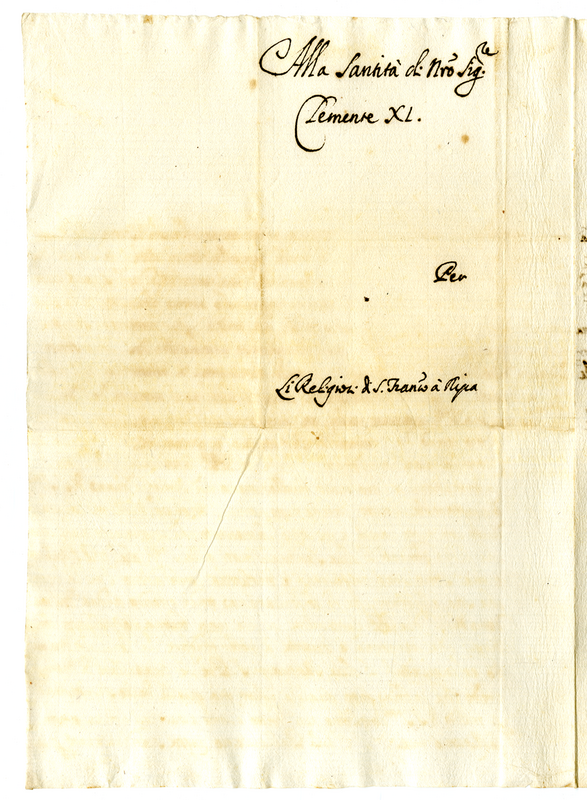 Alla Santità di Nro̅ Sig.re
Clemente XI.
Per
Li Religiosi di S. Franco̅ à Ripa